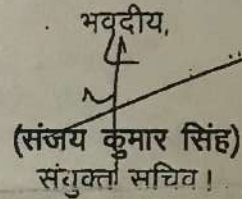 भवदीय,
(संजय कुमार सिंह)
संयुक्त सचिव।